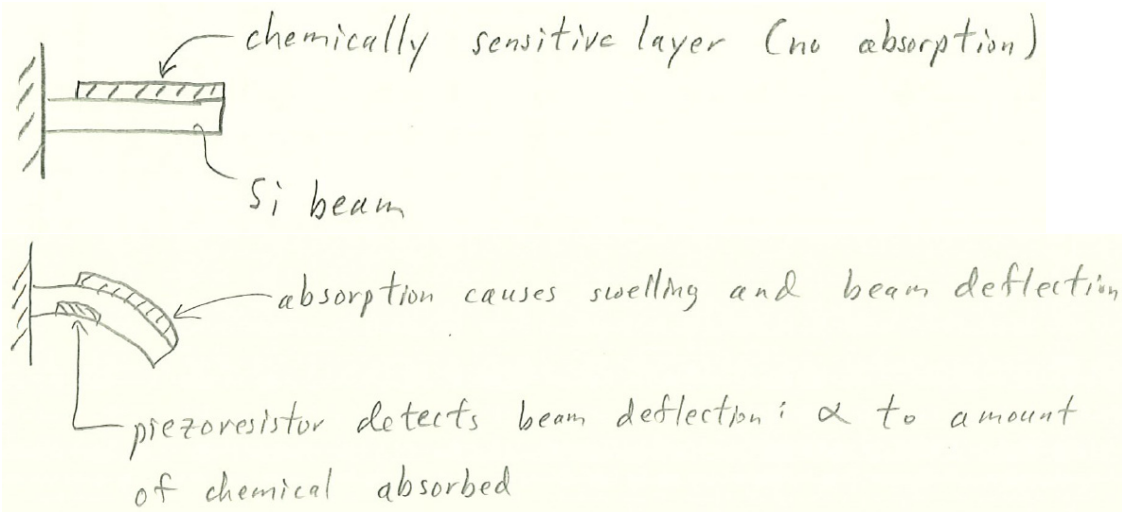 chemically sensitive layer (no absorption)
Si beam
absorption causes swelling and beam deflection
piezoresistor detects beam deflection: ∝ to amount
of chemical absorbed